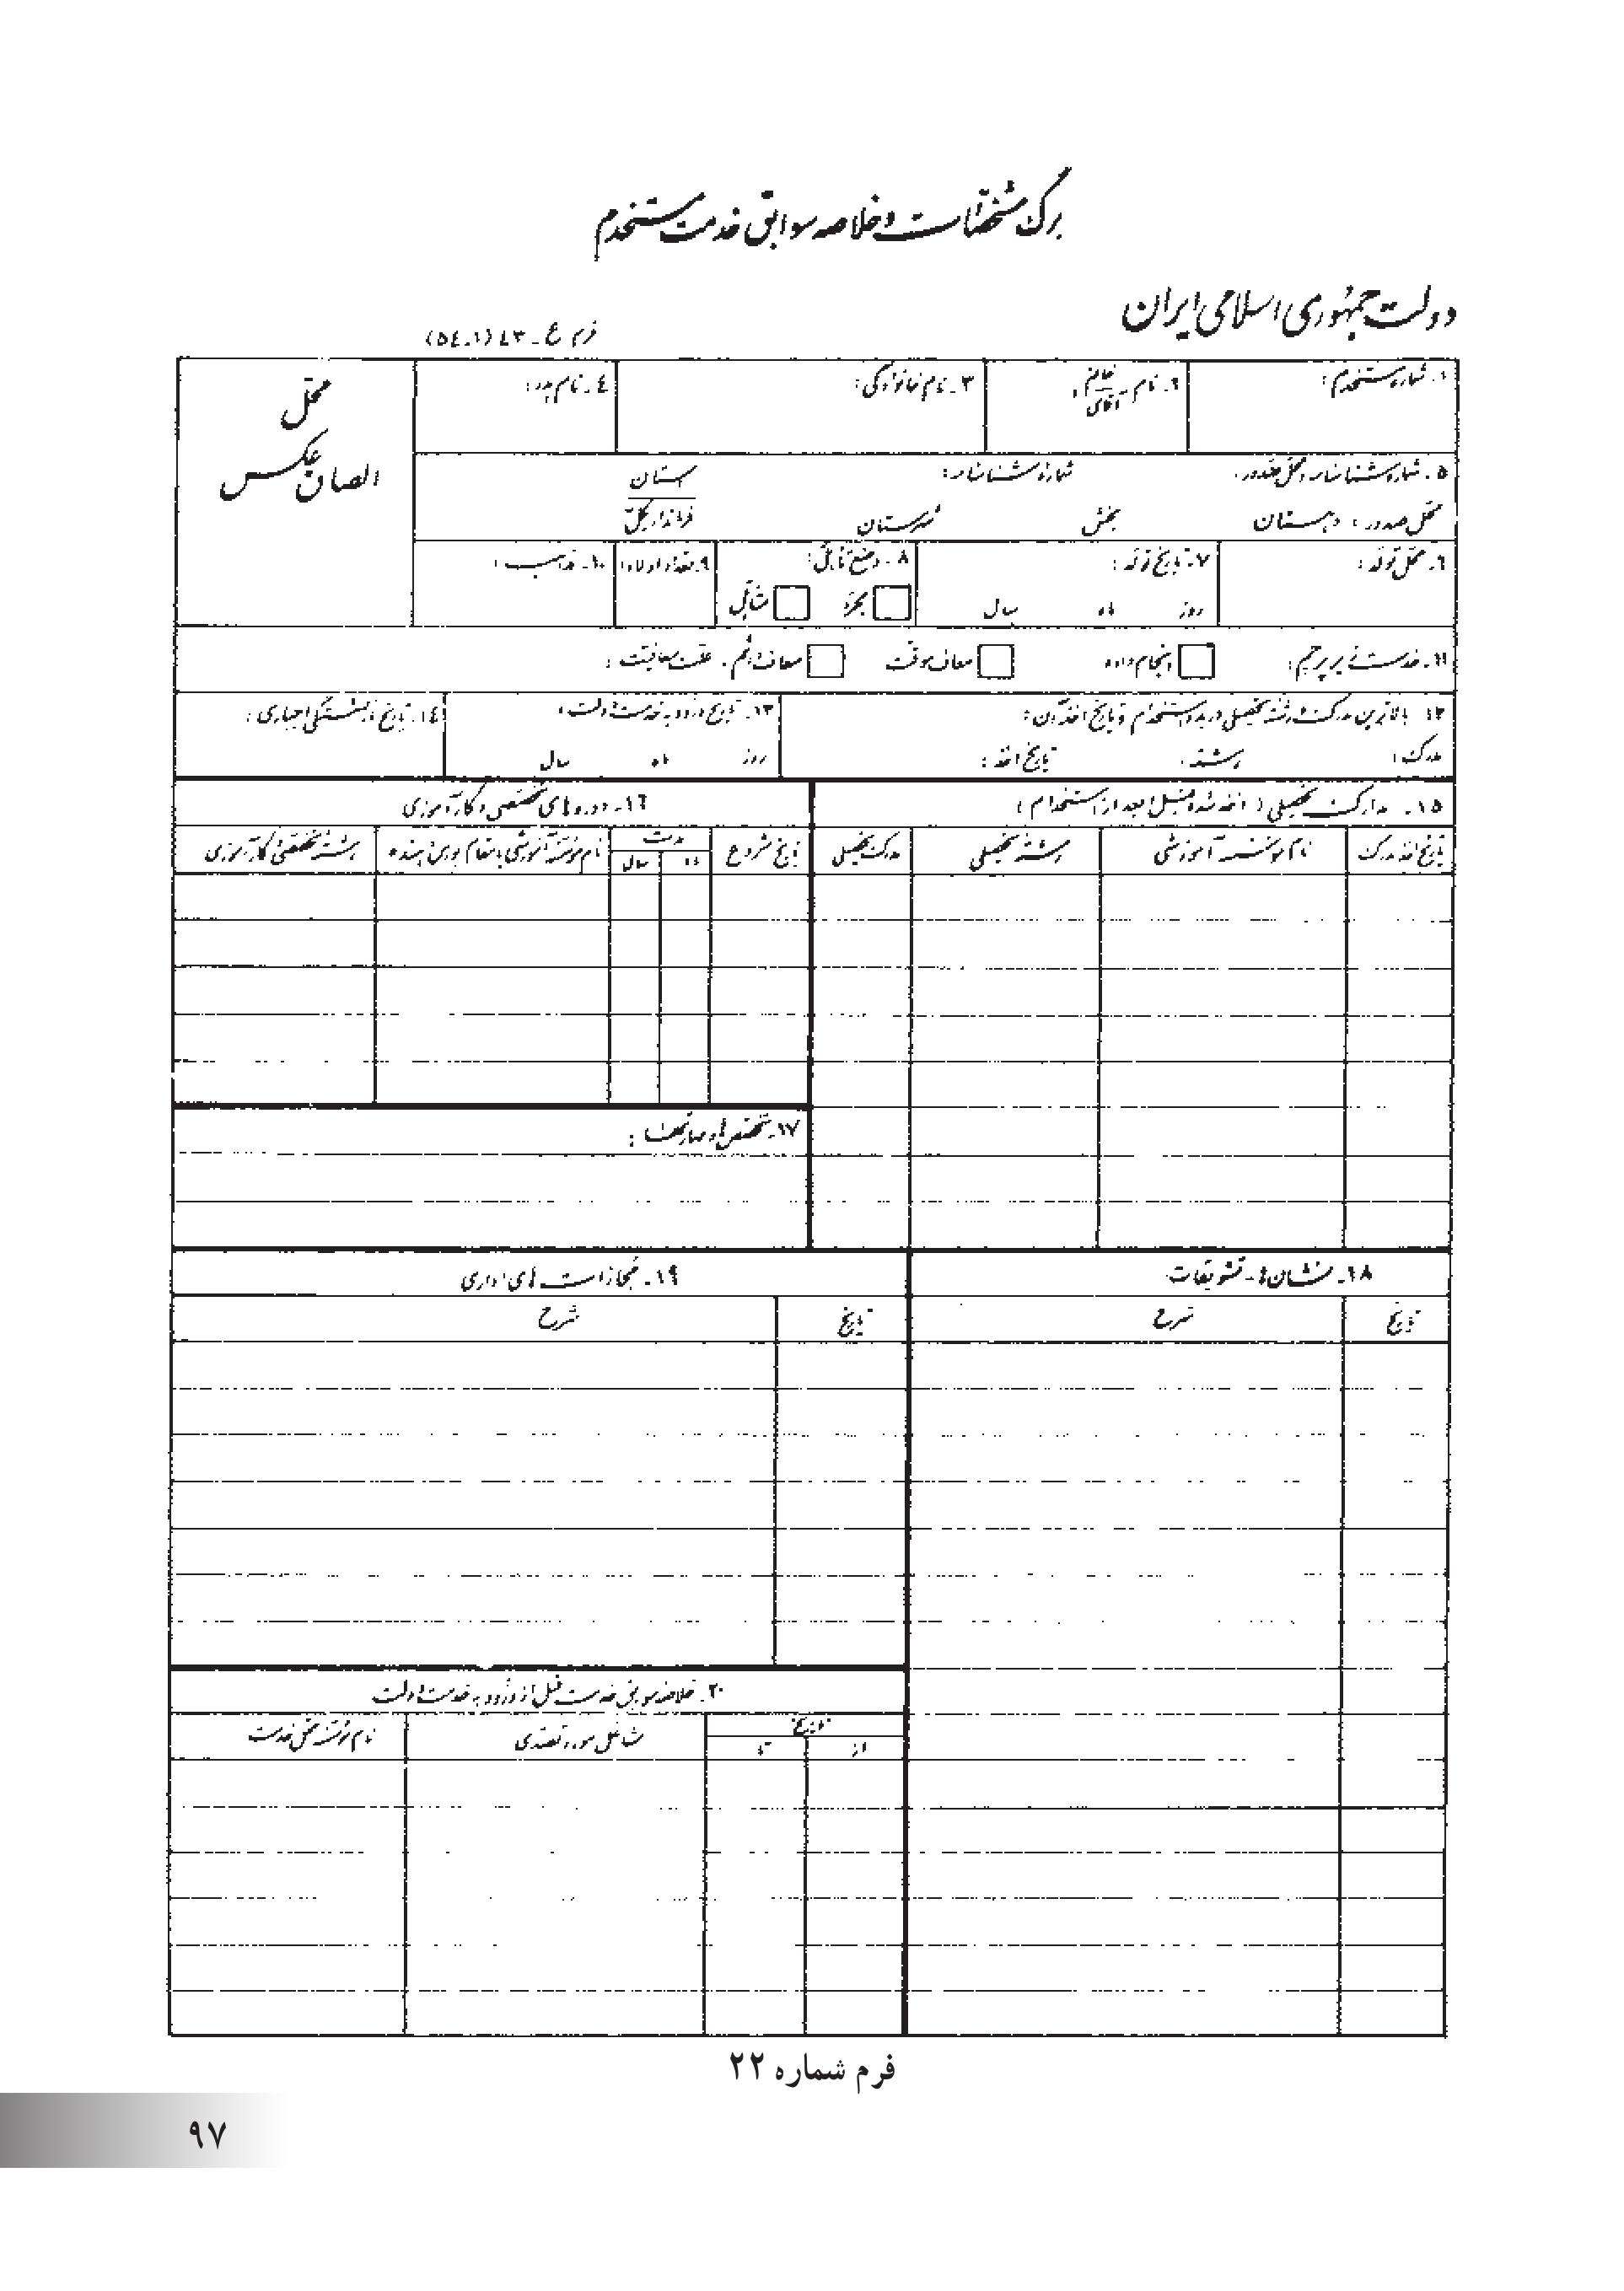 برگ مشخصات و خلاصه سوابق خدمت مستخدم
دولت جمهوری اسلامی ایران
فرم ع - ٤٣ (١-٥٤)
١- شماره مستخدم:
٢- نام خانم / آقای:
٣- نام خانوادگی:
٤- نام پدر:
محل
الصاق عکس
٥- شماره شناسنامه و محل صدور: شماره شناسنامه: استان
محل صدور: دهستان بخش شهرستان فرمانداری کل
٦- محل تولد:
٧- تاریخ تولد:
روز ماه سال
٨- وضع تأهل:
مجرد متأهل
٩- تعداد اولاد:
١٠- مذهب:
١١- خدمت زیر پرچم: انجام داده معاف موقت معاف دائم. علت معافیت:
١٢- بالاترین مدرک و رشته تحصیلی در بدو استخدام و تاریخ اخذ آن:
مدرک: رشته: تاریخ اخذ:
١٣- تاریخ ورود به خدمت دولت:
روز ماه سال
١٤- تاریخ بازنشستگی اجباری:
١٥- مدارک تحصیلی (اخذ شده قبل و بعد از استخدام)
تاریخ اخذ مدرک نام مؤسسه آموزشی رشته تحصیلی مدرک تحصیلی
١٦- دوره‌های تخصصی و کارآموزی
تاریخ شروع مدت نام مؤسسه آموزشی یا مقام بورس دهنده رشته تخصصی کارآموزی
ماه سال
١٧- تخصص‌ها و مهارتها:
١٨- نشان‌ها - تشویقات
تاریخ شرح
١٩- مجازات‌های اداری
تاریخ شرح
٢٠- خلاصه سوابق خدمت قبل از ورود به خدمت دولت
تاریخ مشاغل مورد تصدی نام مؤسسه محل خدمت
از تا
فرم شماره ۲۲
۹۷